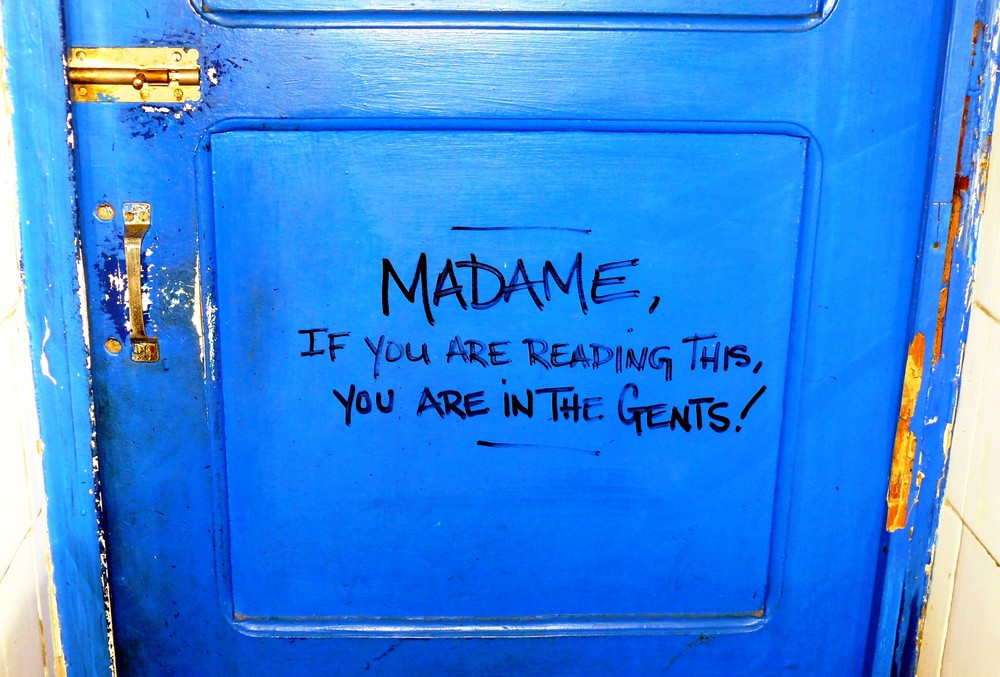 MADAME,
IF YOU ARE READING THIS,
YOU ARE iN THE GENTS!